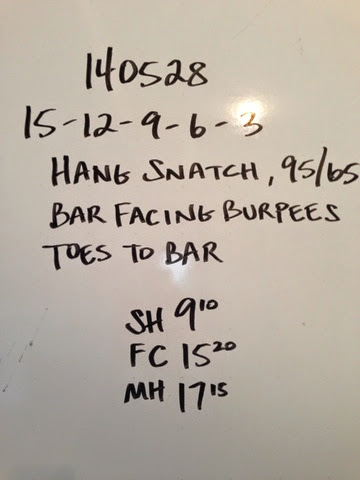 140528
15-12-9-6-3
HANG SNATCH, 95/65
BAR FACING BURPEES
TOES TO BAR
SH 9¹⁰
FC 15²⁰
MH 17¹⁵